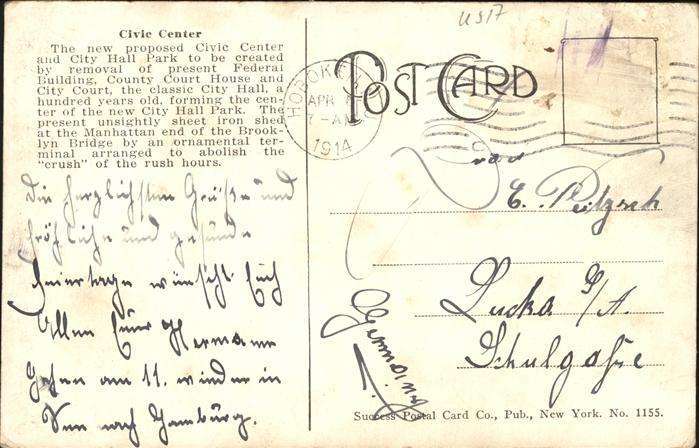 U517
Civic Center
The new proposed Civic Center
and City Hall Park to be created
by removal of present Federal
Building, County Court House and
City Court, the classic City Hall, a
hundred years old, forming the cen-
ter of the new City Hall Park. The
present unsightly sheet iron shed
at the Manhattan end of the Brook-
lyn Bridge by an ornamental ter-
minal arranged to abolish the
"crush" of the rush hours.
Die herzlichsten Grüße und
fröhliche und gesunde
Feiertage wünscht Euch
Allen Euer Hermann
Gehen am 11. wieder in
See nach Hamburg.
HOBOKEN
APR
7-AM
1914
POST CARD
Frau
E. Peitzsch
Lucka S/A.
Schulgaße
Germany
Success Postal Card Co., Pub., New York. No. 1155.